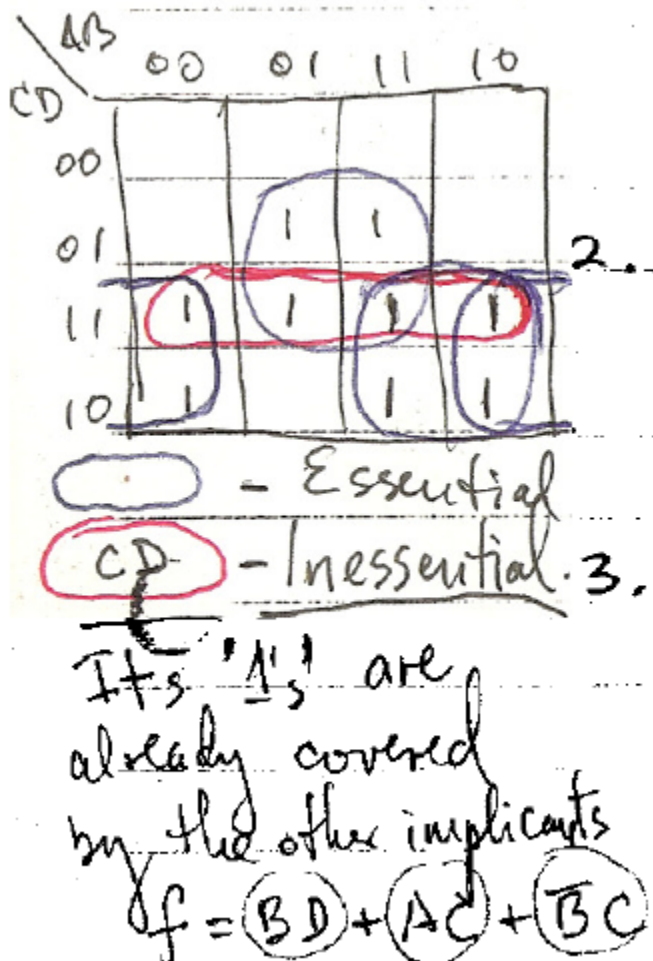 AB
00 01 11 10
CD
00
01 1 1
2.
11 1 1 1 1
10 1 1 1
- Essential
CD - Inessential. 3.
Its '1's' are
already covered
by the other implicants
f = BD + AC + B̅C